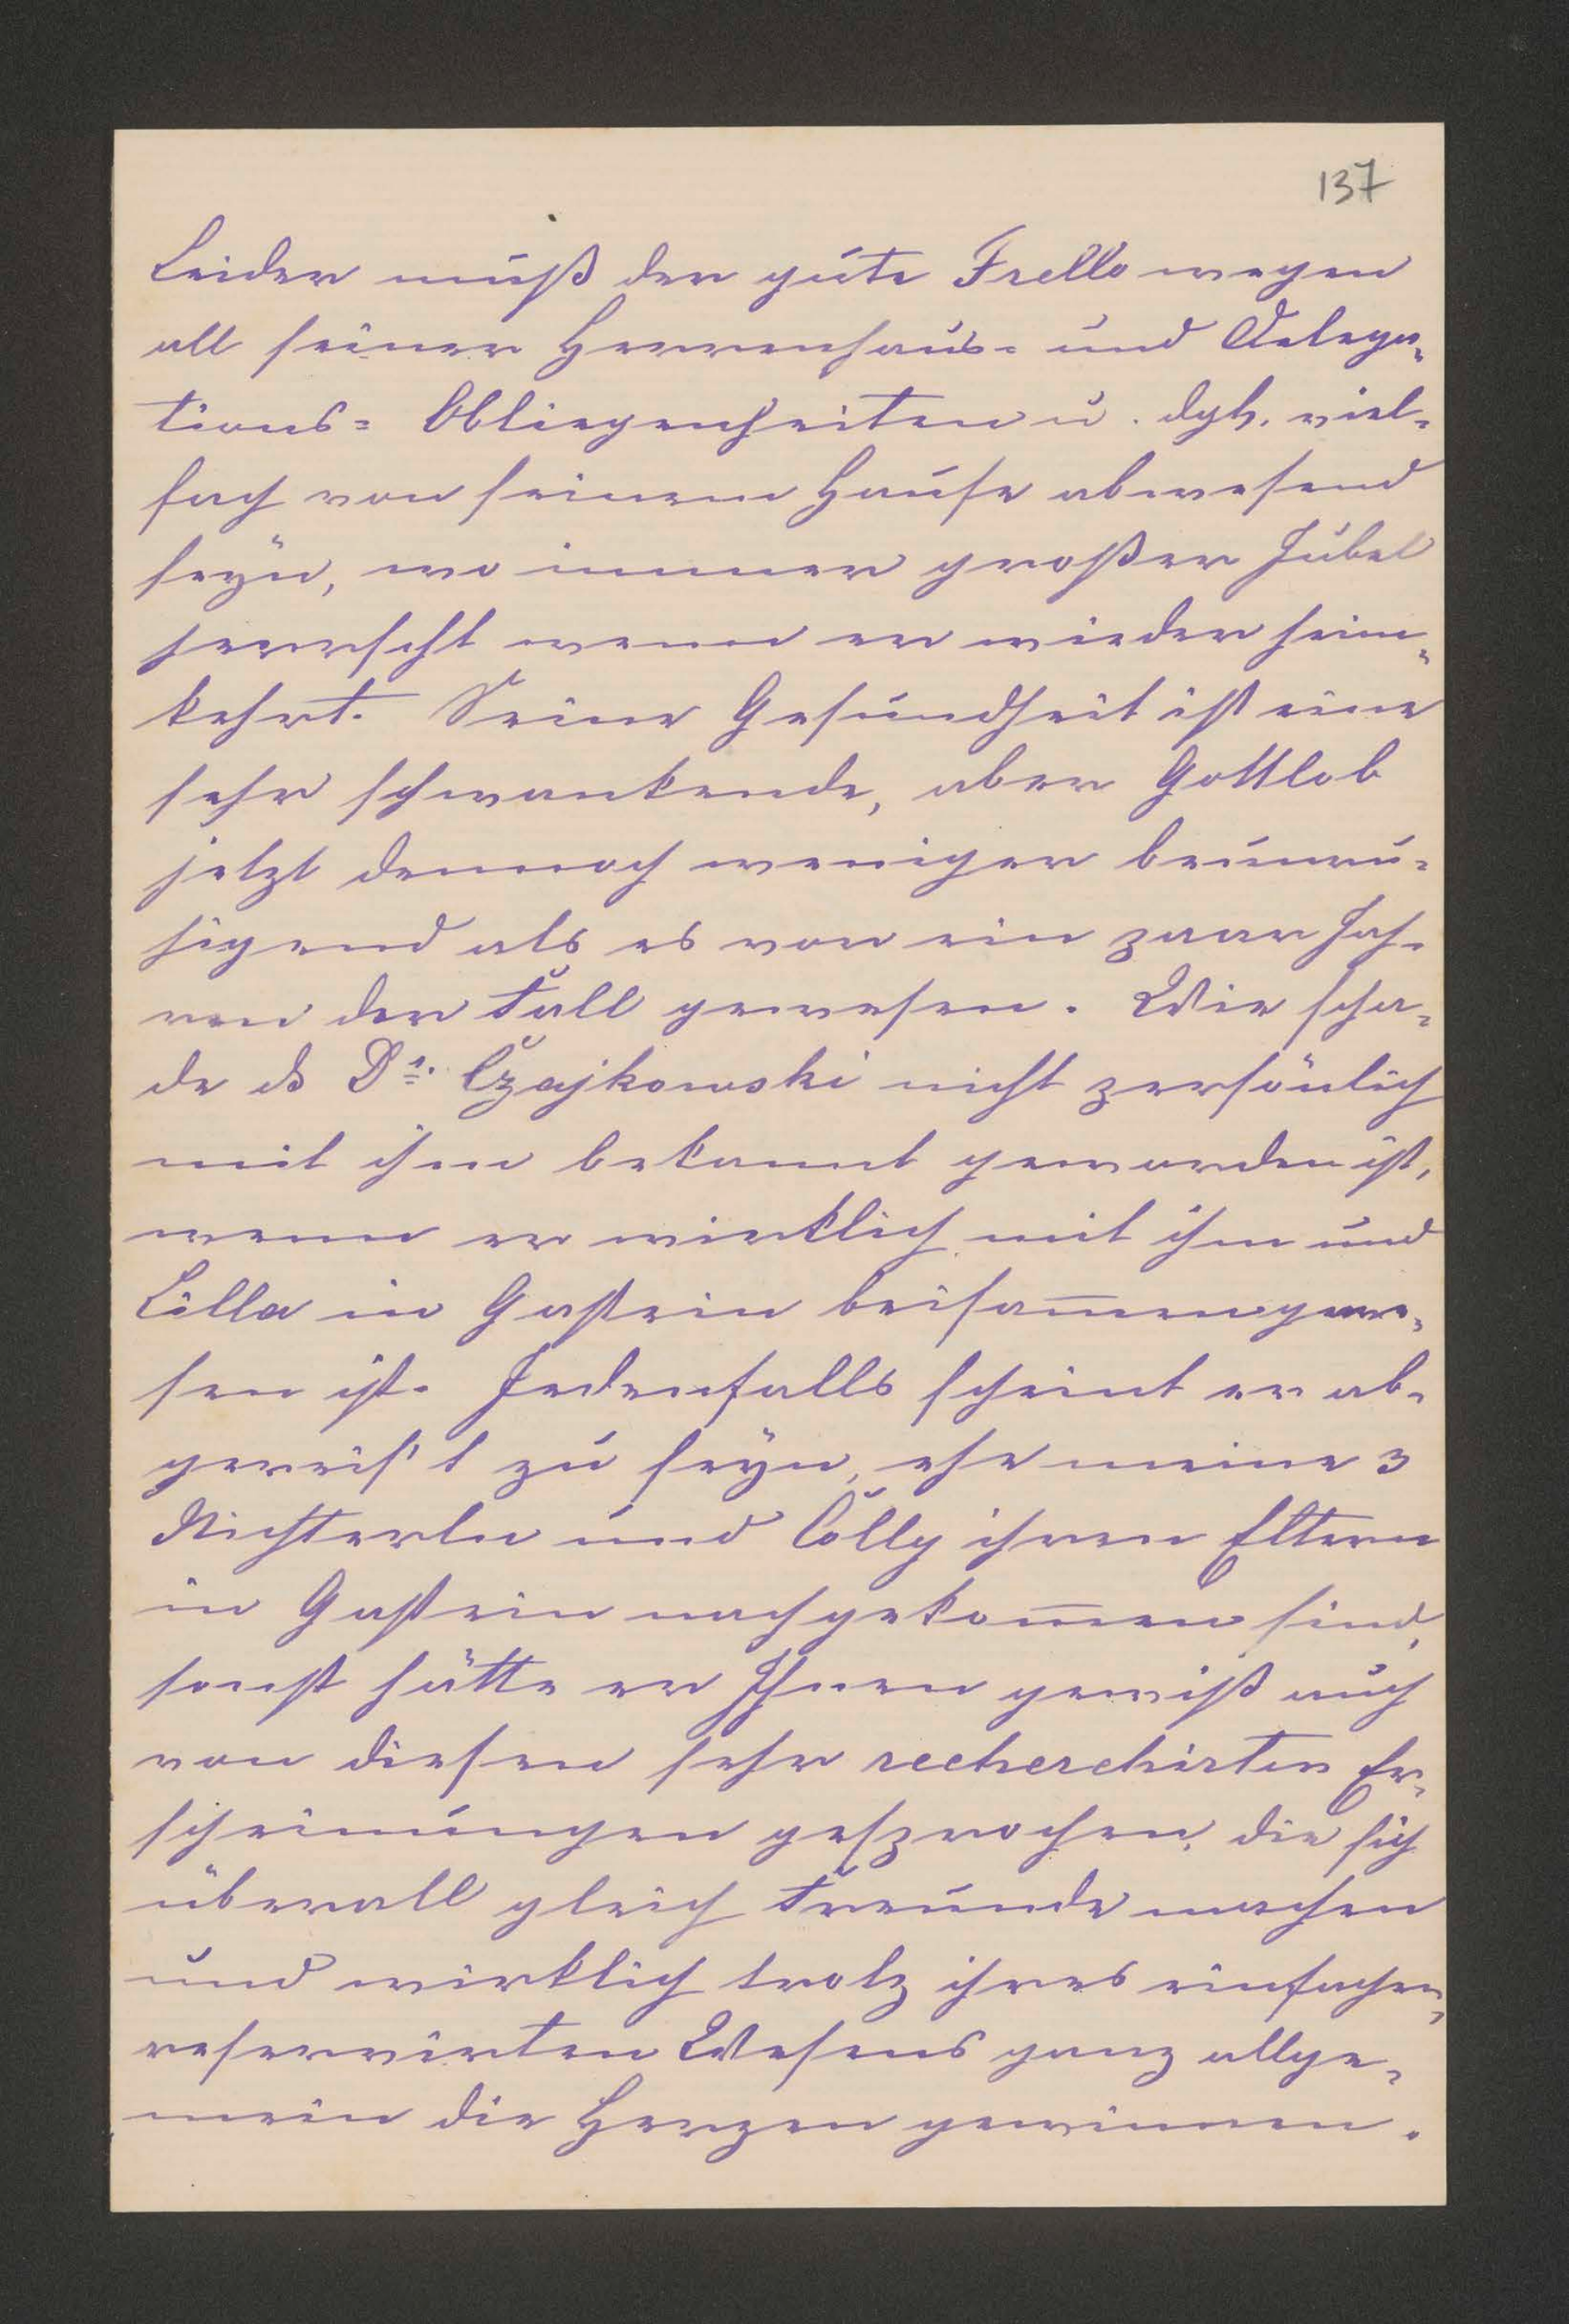 137
Leider muß der gute Frello wegen
all seiner Herrenhaus= und Delega=
tions= Obliegenheiten u. dgl. viel=
fach von seinem Hause abwesend
seyn, wo immer großer Jubel
herrscht wenn er wieder heim=
kehrt. Seine Gesundheit ist eine
sehr schwankende, aber Gottlob
jetzt dennoch weniger beunru=
higend als es vor ein paar Jah=
ren der Fall gewesen. Wie scha=
de ds Dr. Czajkowski nicht persönlich
mit ihm bekannt geworden ist,
wenn er wirklich mit ihm und
Lilla in Gastein beisam̅engewe=
sen ist. Jedenfalls scheint er ab=
gereis't zu seyn, ehe meine 3
Nichterln und Colly ihren Eltern
in Gastein nachgekom̅en sind,
sonst hätte er Ihnen gewiß auch
von diesen sehr recherchirten Er=
scheinungen gesprochen, die sich
überall gleich Freunde machen
und wirklich trotz ihres einfachen,
reservirten Wesens ganz allge=
mein die Herzen gewinnen.